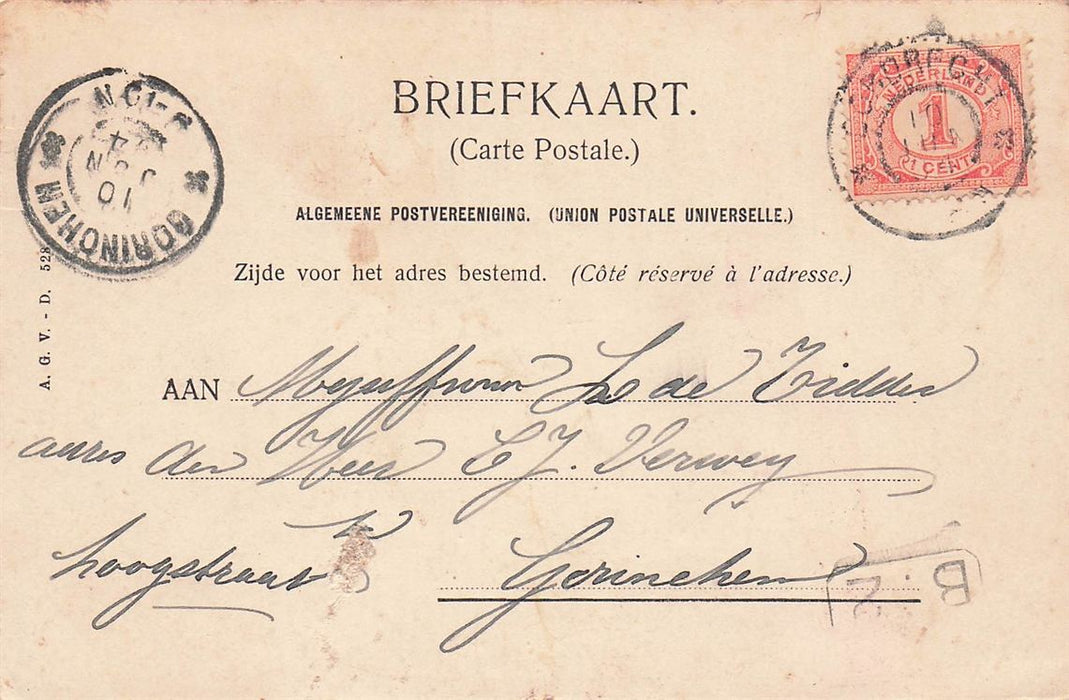 BRIEFKAART.
(Carte Postale.)
ALGEMEENE POSTVEREENIGING. (UNION POSTALE UNIVERSELLE.)
Zijde voor het adres bestemd. (Côté réservé à l'adresse.)
NEDERLAND
1
1 CENT
GORINCHEM
10 JAN
A. G. V. - D. 528
AAN Mejuffrouw L de Ridder
adres den Heer C J. Verwey
Hoogstraat
Gorinchem